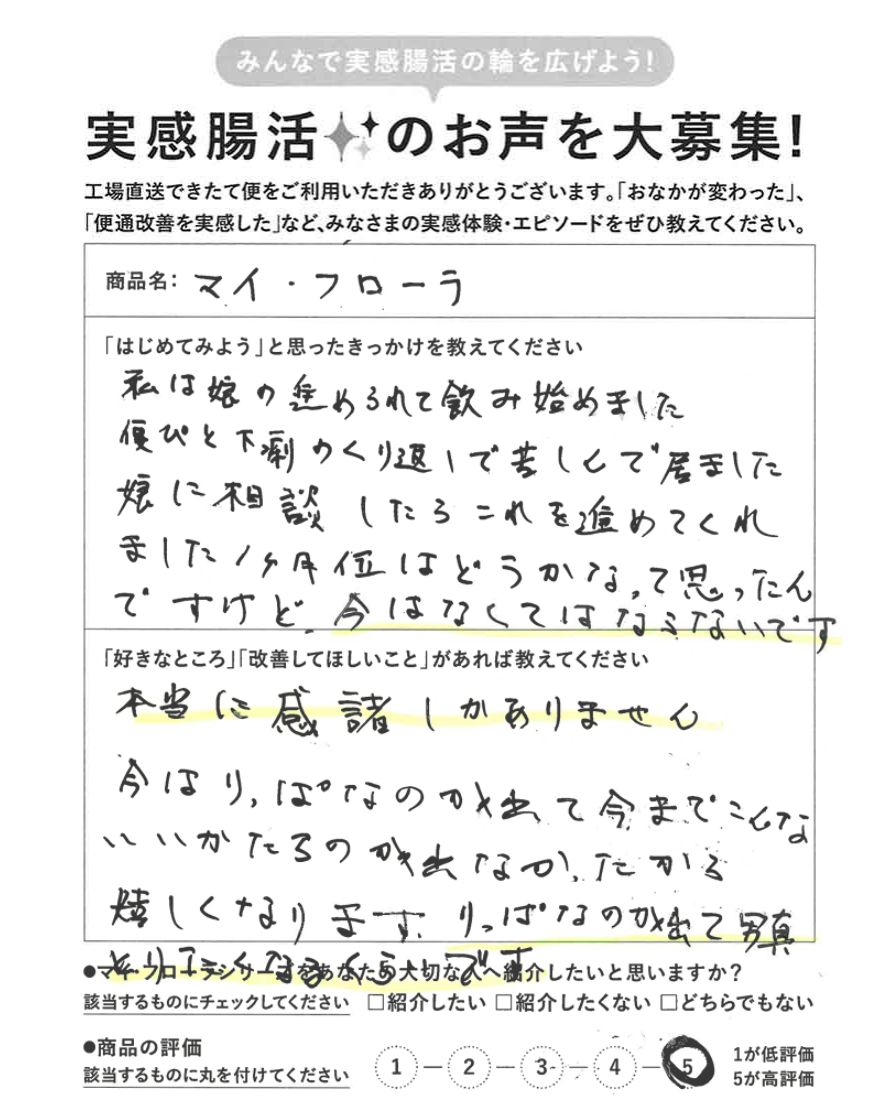 みんなで実感腸活の輪を広げよう!
実感腸活のお声を大募集!
工場直送できたて便をご利用いただきありがとうございます。「おなかが変わった」、
「便通改善を実感した」など、みなさまの実感体験・エピソードをぜひ教えてください。
商品名: マイ・フローラ
「はじめてみよう」と思ったきっかけを教えてください
私は娘の進められて飲み始めました
便ぴと下痢のくり返しで苦しんで居ました
娘に相談したらこれを進めてくれ
ました1ヶ月位はどうかなって思ったん
ですけど、今はなくてはならないです
「好きなところ」「改善してほしいこと」があれば教えてください
本当に感諸しかありません
今はりっぱなのが出て今までこんな
いいかたちのが出なかったから
嬉しくなります。りっぱなのが出て写真
とりたくなるくらいです
●マイ・フローラシリーズをあなたの大切な人へ紹介したいと思いますか?
該当するものにチェックしてください □紹介したい □紹介したくない □どちらでもない
●商品の評価
該当するものに丸を付けてください
1 2 3 4 5
1が低評価
5が高評価